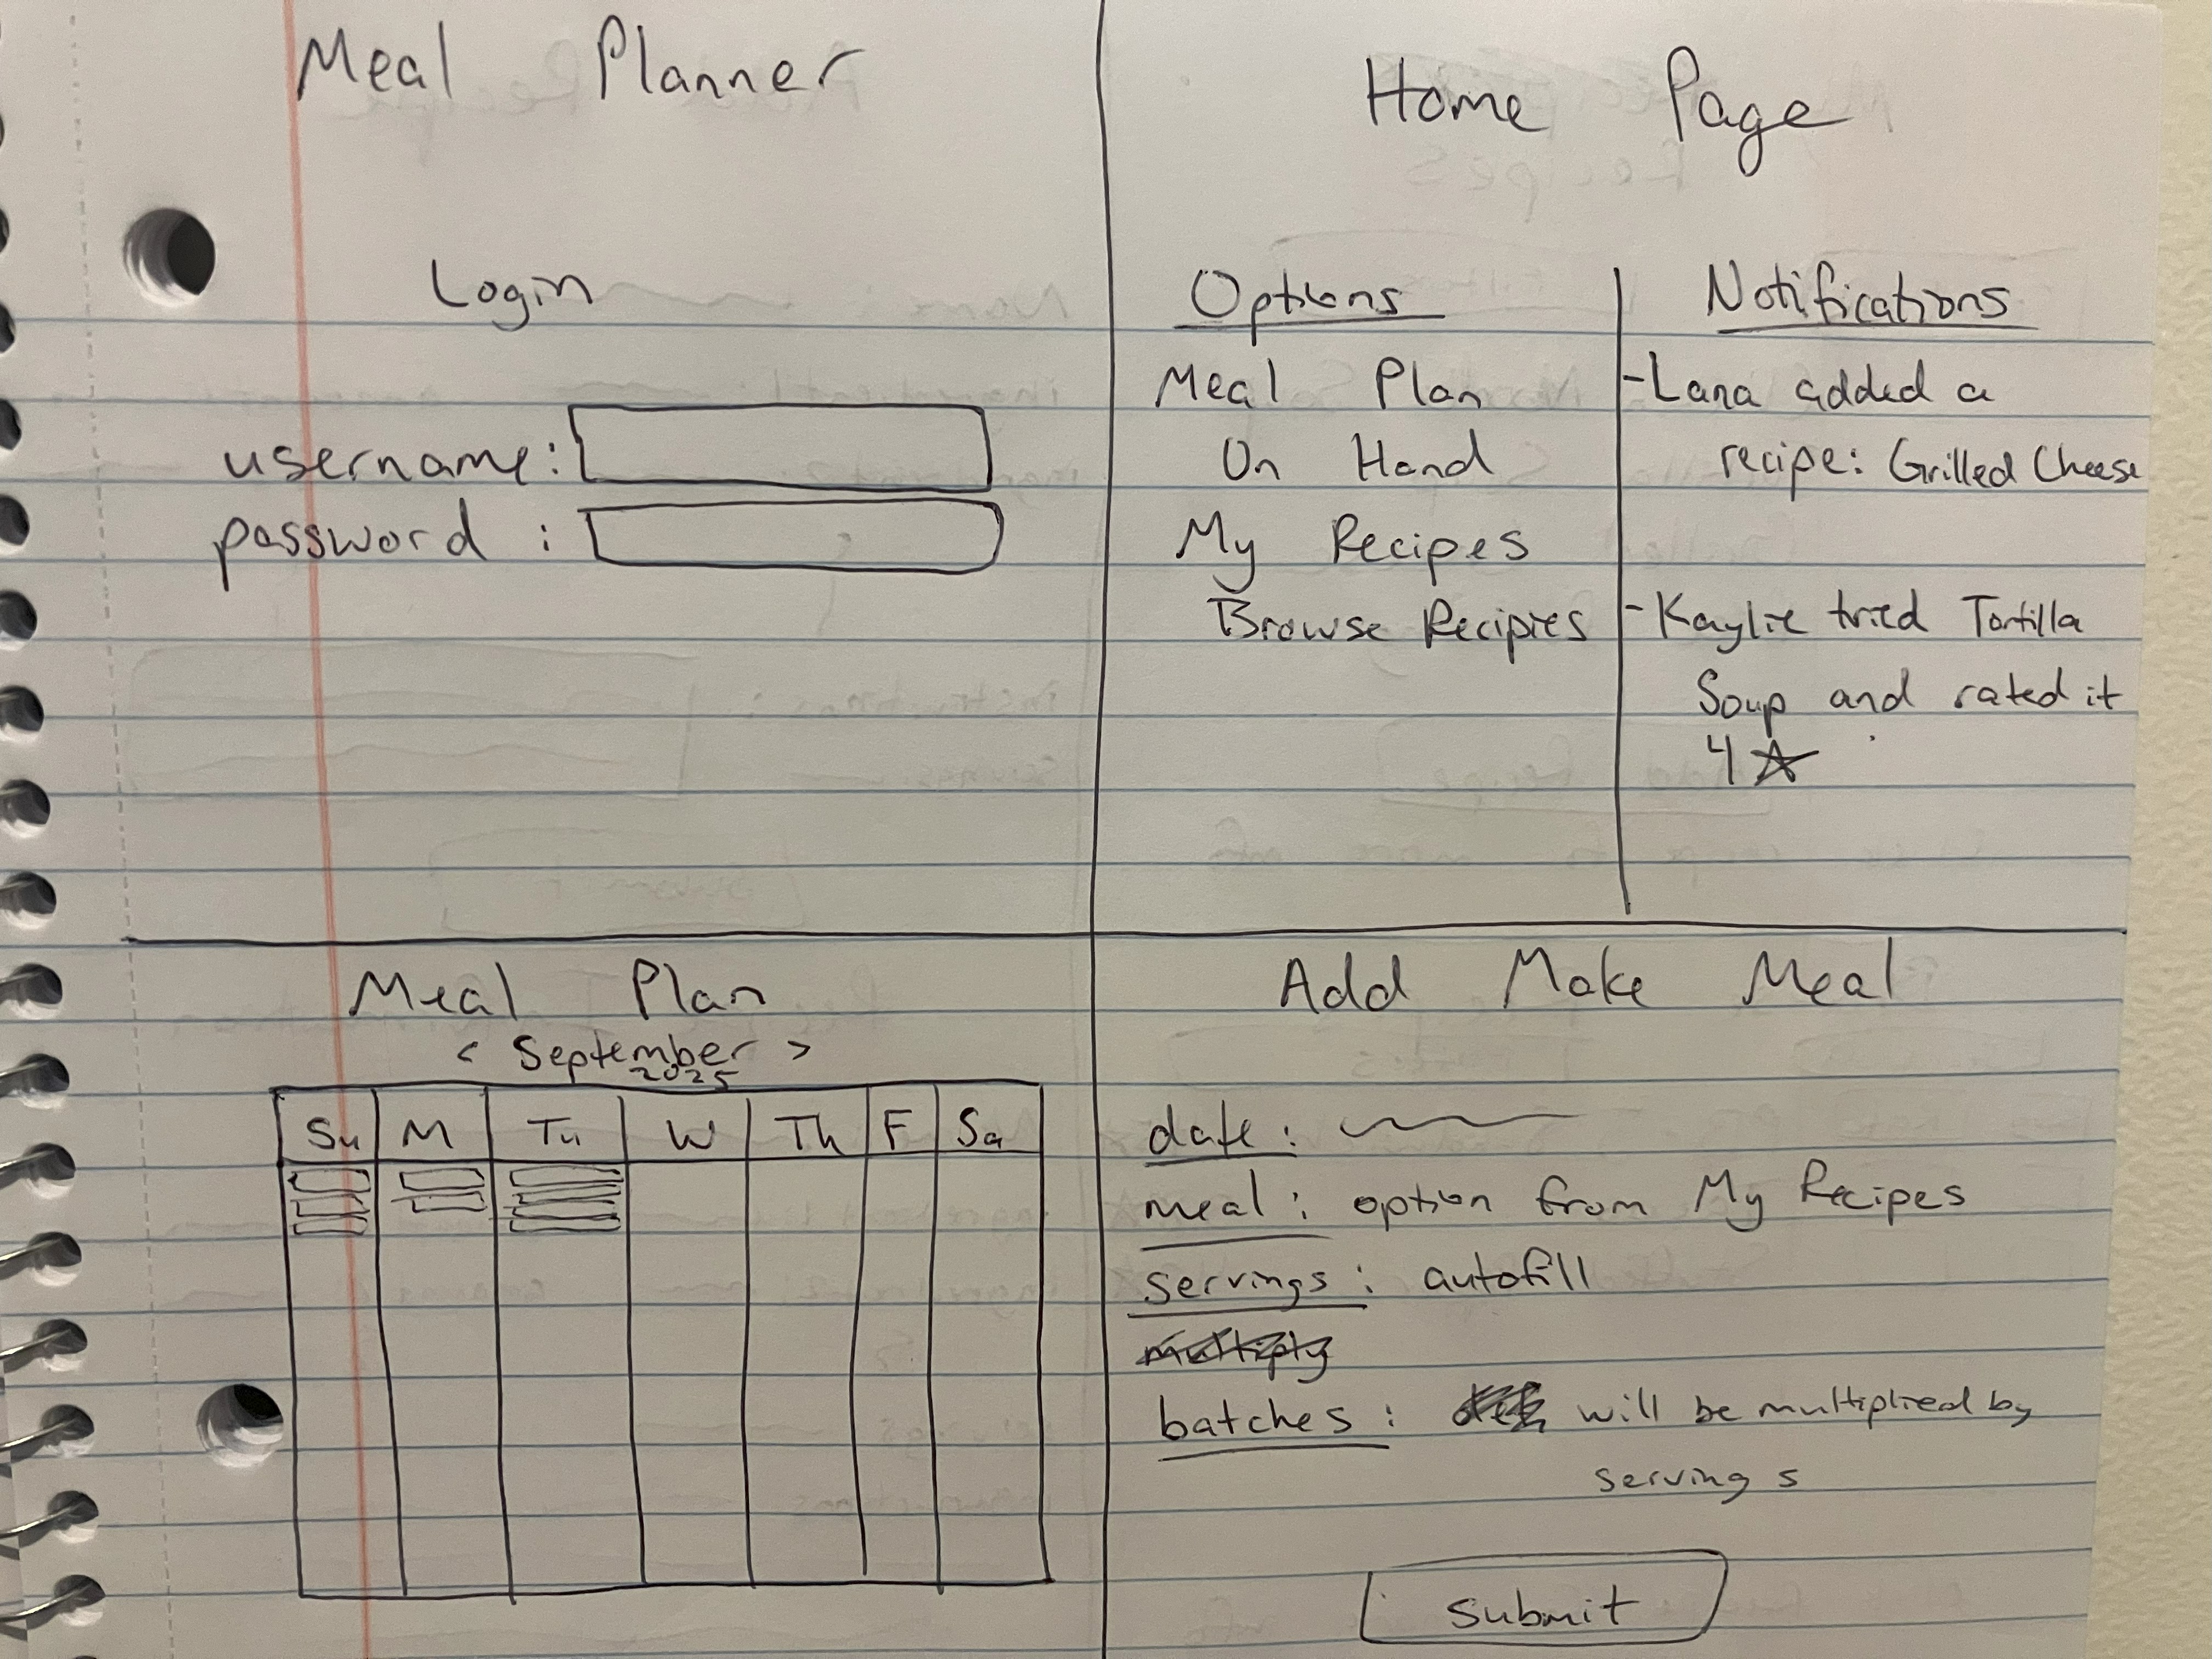 Meal Planner
Login
username:
password :
Home Page
Options
Meal Plan
On Hand
My Recipes
Browse Recipies
Notifications
-Lana added a
recipe: Grilled Cheese
-Kaylie tried Tortilla
Soup and rated it
4 ☆
Meal Plan
< September >
2025
Su M Tu W Th F Sa
Add Make Meal
date :
meal : option from My Recipes
servings : autofill
multiply
batches : will be multiplied by
servings
Submit